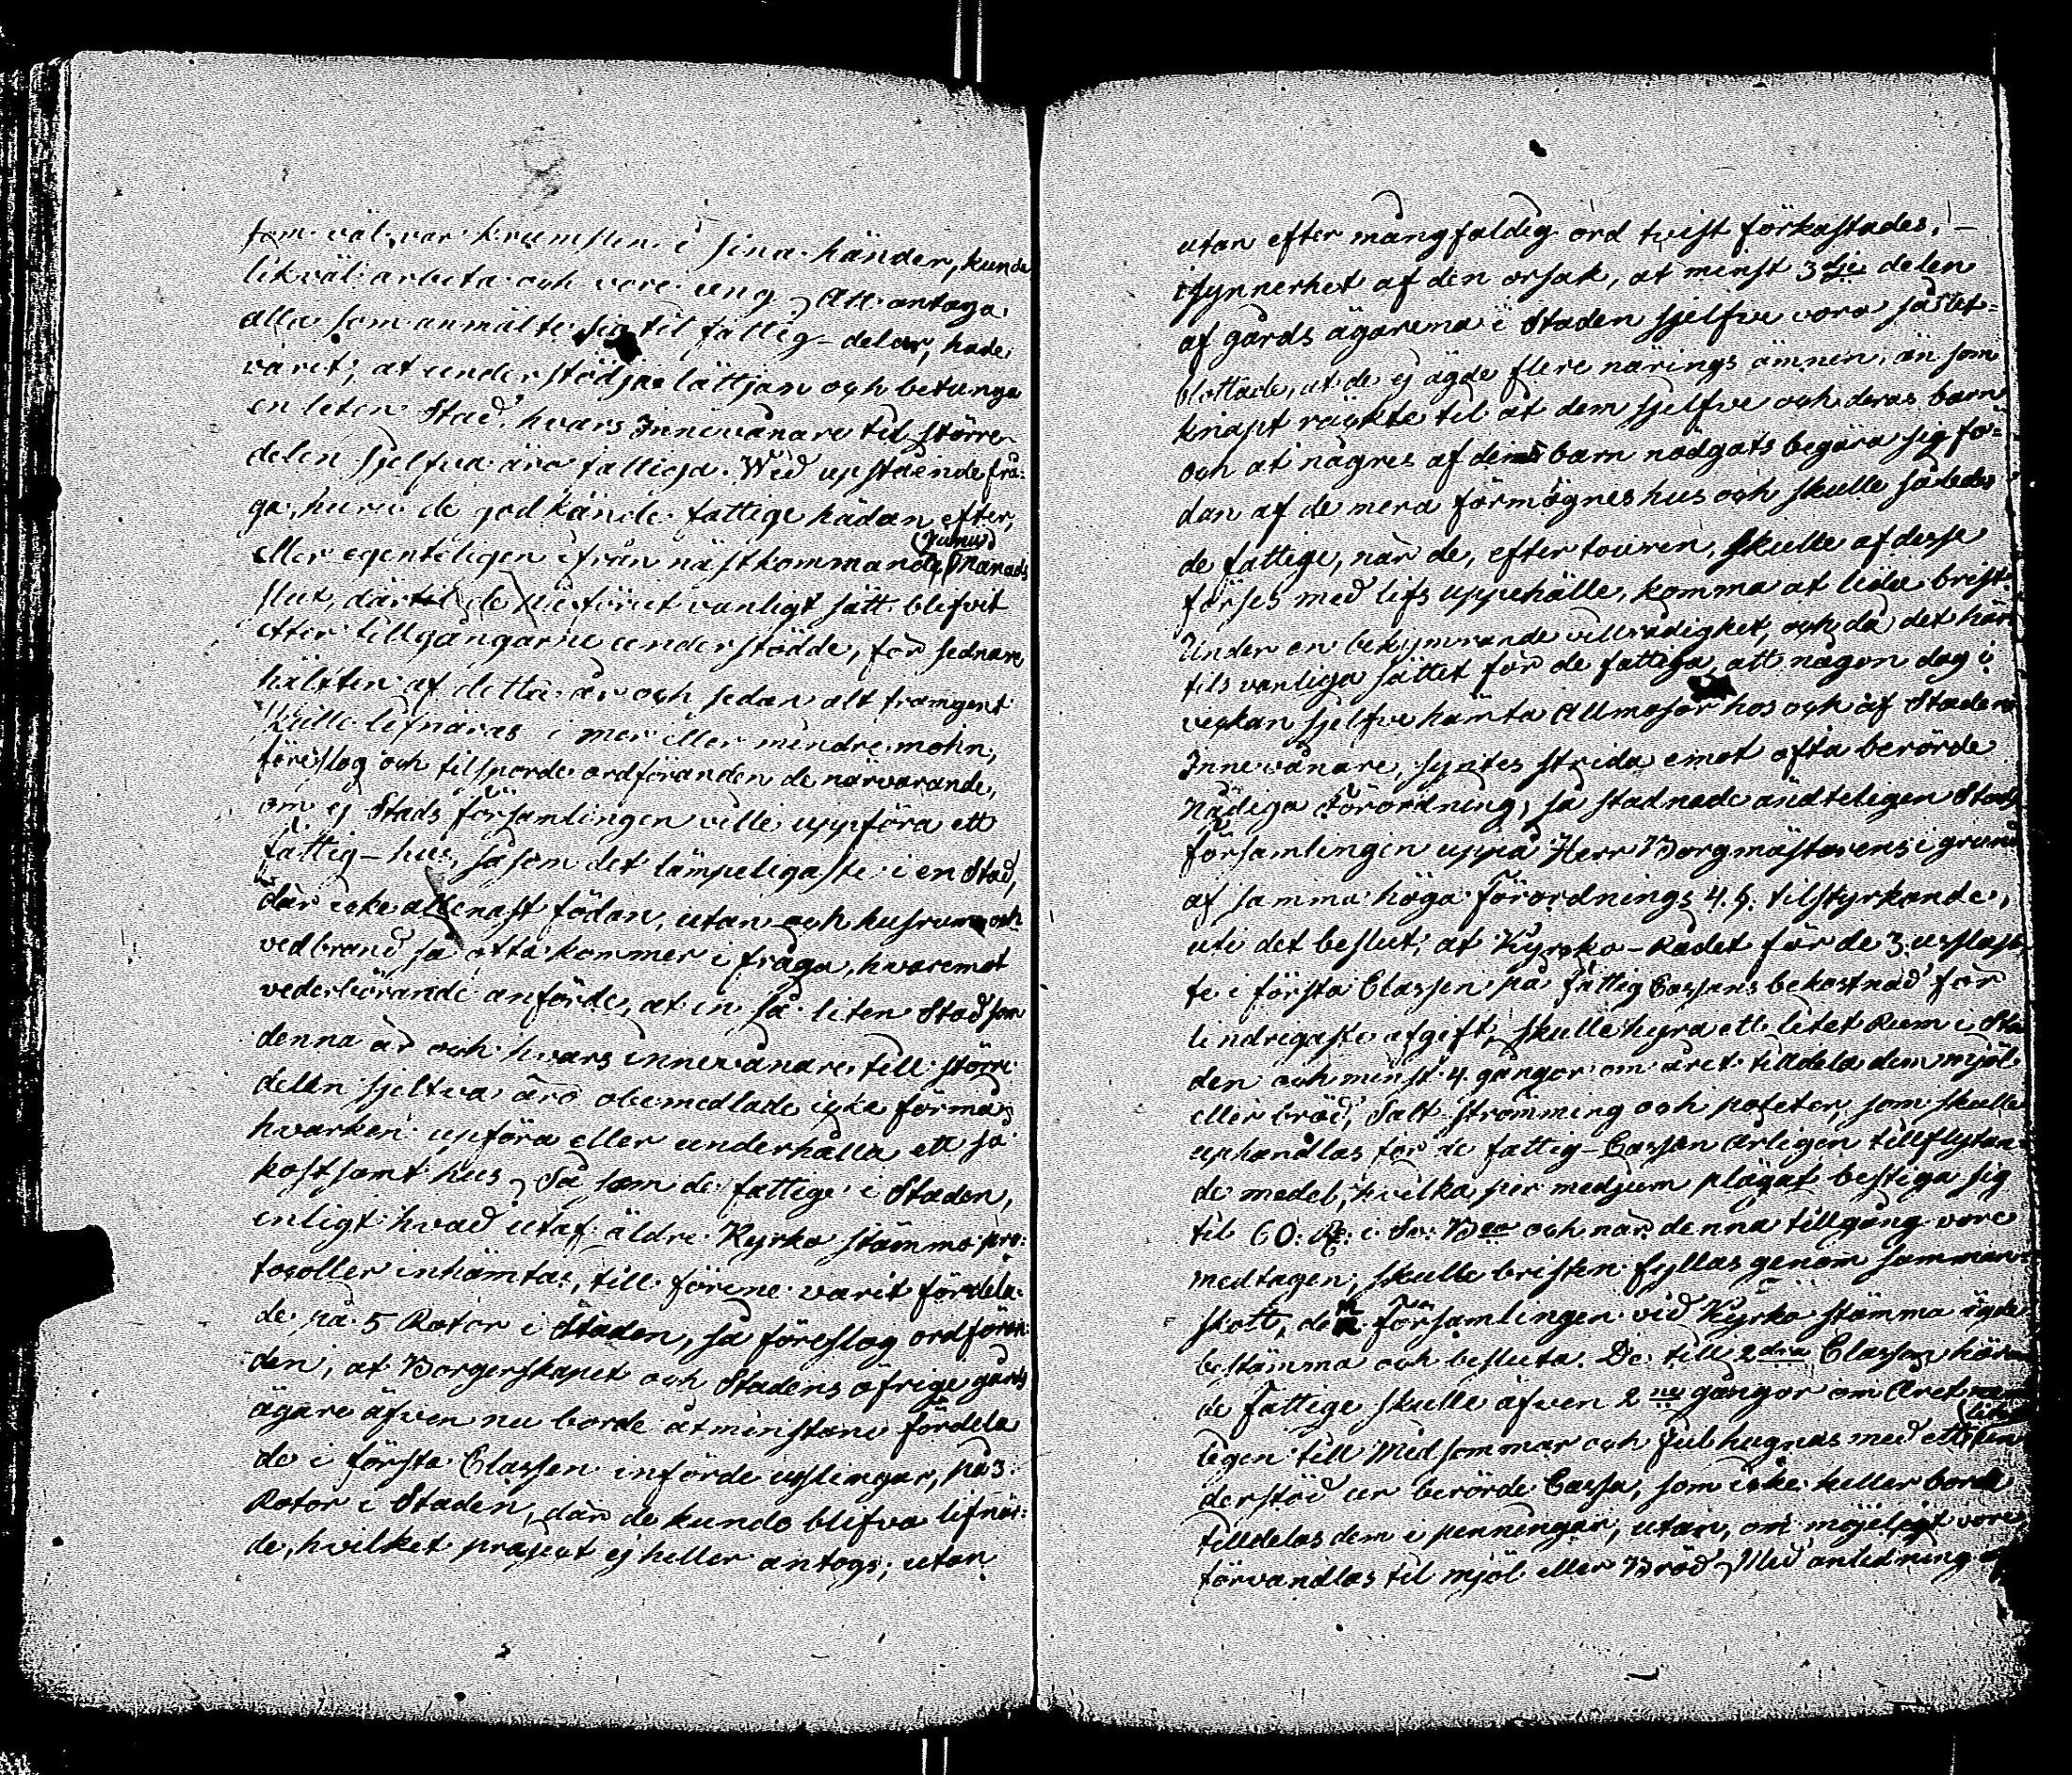 som väl var krumsten i sina händer, kunde
likväl arbeta och vore ung. Att antaga
alla som anmälte sig til fattig-delar, hade
varit, at understödja lättjan och betunga
en liten Stad, hvars Innevånare til större
delen sjelfva äro fattiga. Wid upstående frå-
ga, huru de godkände fattige hädan efter,
(Junii)
eller egenteligen ifrån nästkommande Månads
slut, därtil de på förut vanligt sätt blifvit
efter tillgångarne understödde, för sednare
hälften af detta år och sedan alt framgent
skulle lifnäras i mer eller mindre mohn,
föreslog och tilsporde ordföranden de närvarande,
om ej Stads församlingen ville uppföra ett
fattig-hus, såsom det lämpeligaste i en Stad,
där icke allenast födan, utan och husrum och
vedbrand så ofta kommer i fråga, hvaremot
vederbörande anförde, at en så liten Stad som
denna är och hvars innevånare till större
delen sjelfva äro obemedlade icke förmå
hvarken upföra eller underhålla ett så
kostsamt hus. Så som de fattige i Staden,
enligt hvad utaf äldre Kyrko stämmo pro-
tocoller inhämtas, till förene varit fördela-
de på 5 Rotor i Staden, så föreslog ordföran-
den, at Borgerskapet och Stadens öfrige gårds
ägare äfven nu borde åtminstone fördela
de i första Classen införde uslingar, på 3.
Rotor i Staden, där de kunde blifva lifnär-
de, hvilket project ej heller antogs; utan
utan efter mångfaldig ord tvist förkastades, –
i synnerhet af den orsak, at minst 3dje delen
af gårds ägarena i Staden sjelfve voro så ut-
blottade, at de ej ägde flere närings ämnen, än som
knapt räckte til at dem sjelfve och deras barn
och at någres af dem barn nödgats begära sig fö-
dan af de mera förmögnes hus och skulle således
de fattige, när de, efter touren, skulle af desse
förses med lifs uppehälle, komma at lida brist.
Under en bekymrande villrådighet, och då det här
tils vanliga sättet för de fattiga, att någon dag i
veckan sjelfve hämta Allmosor hos och af Stadens
Innevånare, syntes strida emot ofta berörde
Nådiga Förordning, så stadnade ändteligen Stads
församlingen uppå Herr Borgmästarens i grund
af samma höga Förordnings 4. §. tilstyrkande,
uti det beslut, at Kyrko-Rådet för de 3. upslag-
te i första Classen på Fattig Cassans bekostnad för
lindrigaste afgift, skulle hyra ett litet Rum i Sta-
den och minst 4. gångor om året tilldela dem mjöl
eller bröd, Salt strömming och poteter, som skulle
uphandlas för de fattig-Cassan årligen tillflytan-
de medel, hvilka per medium plägat bestiga sig
til 60. Rd: i Sv: Bco och när denna tillgång vore
medtagen, skulle bristen fyllas genom samman-
skott, dem Församlingen vid Kyrko stämma ägde
bestämma och besluta. De till 2dra Classen höran-
de Fattige skulle äfven 2ne gångor om Året nem-
(litet)
ligen till Midsommar och Jul hugnas med ett un-
derstöd ur berörde Cassa, som icke heller borde
tilldelas dem i penningar, utan, om möjeligt vore
förvandlas til mjöl eller Bröd. Med anledning af